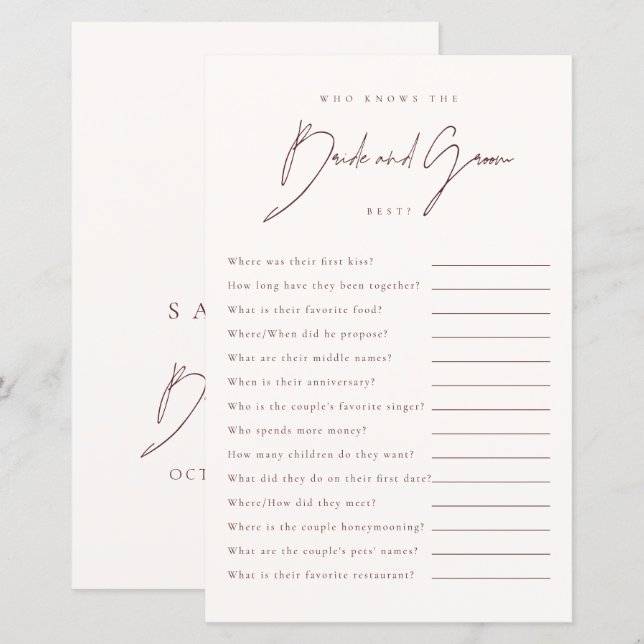 WHO KNOWS THE
Bride and Groom
BEST?
Where was their first kiss?
How long have they been together?
What is their favorite food?
Where/When did he propose?
What are their middle names?
When is their anniversary?
Who is the couple's favorite singer?
Who spends more money?
How many children do they want?
What did they do on their first date?
Where/How did they meet?
Where is the couple honeymooning?
What are the couple's pets' names?
What is their favorite restaurant?
SA
B
OCT